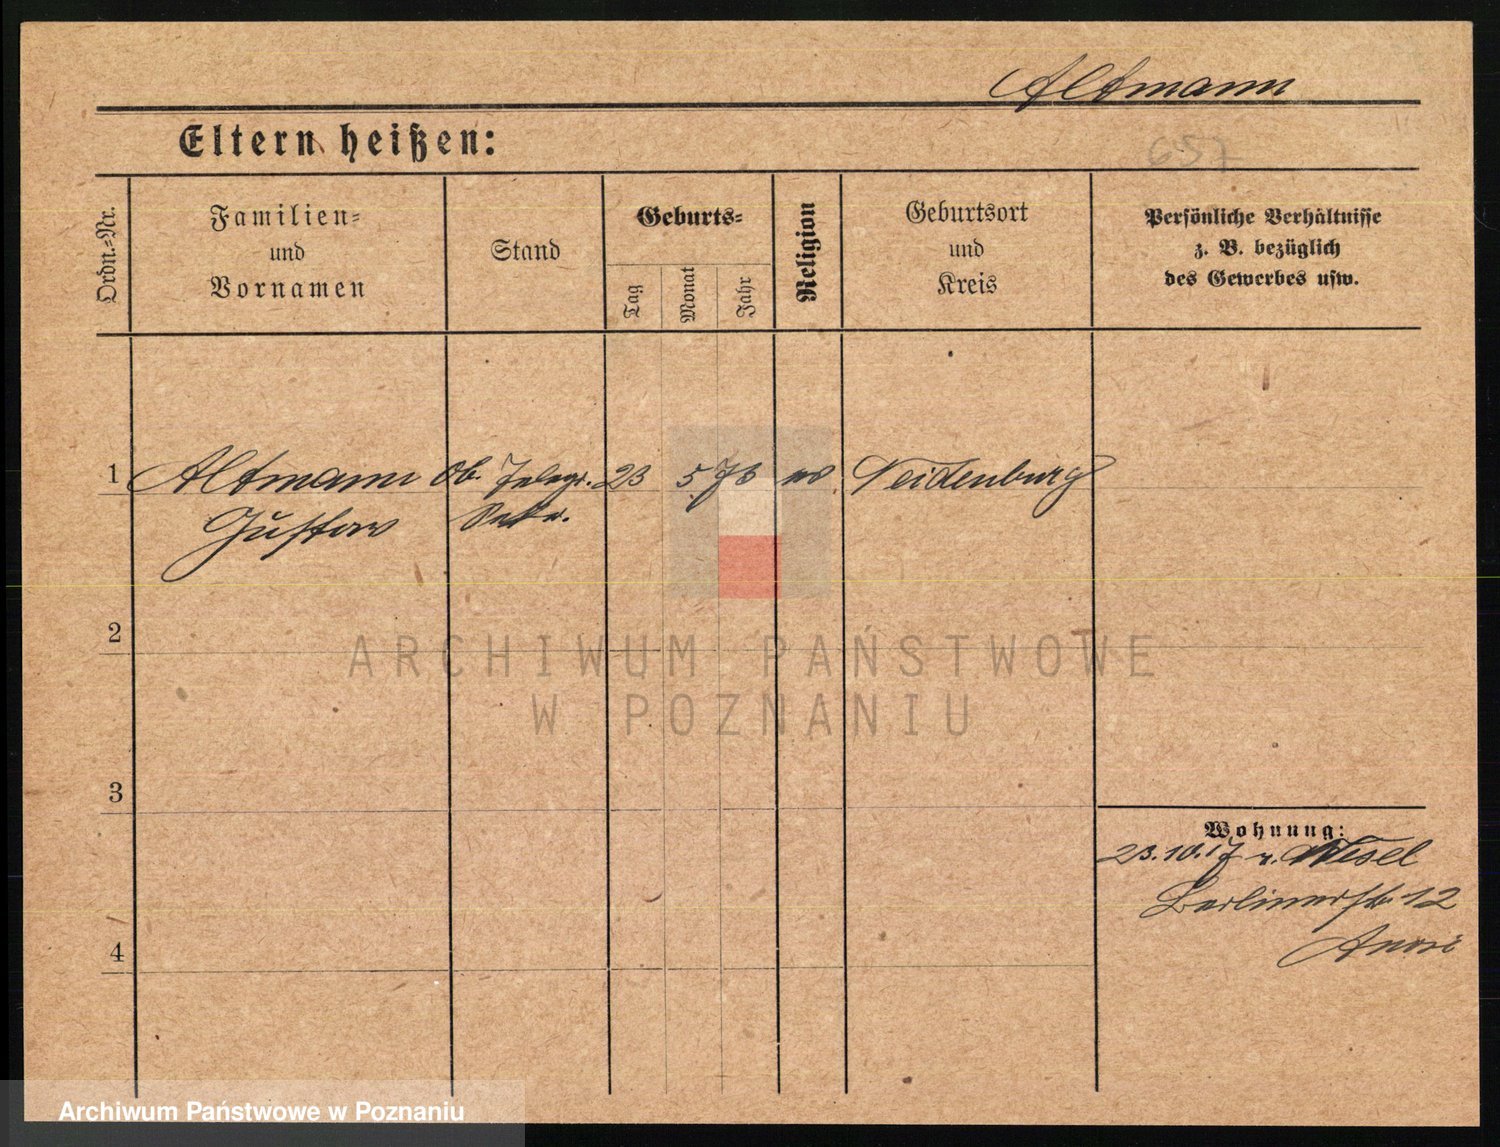 Altmann
Eltern heißen:
657
Ordn.=Nr.
Familien=
und
Vornamen
Stand
Geburts=
Tag
Monat
Jahr
Religion
Geburtsort
und
Kreis
Persönliche Verhältnisse
z. B. bezüglich
des Gewerbes usw.
1
Altmann Ob. Telegr. 23 5 78 ev Neidenburg
Gustav Sekr.
2
ARCHIWUM PAŃSTWOWE
W POZNANIU
3
Wohnung:
23.10.17 v. Wesel
Berlinerstr 12
4
Archiwum Państwowe w Poznaniu